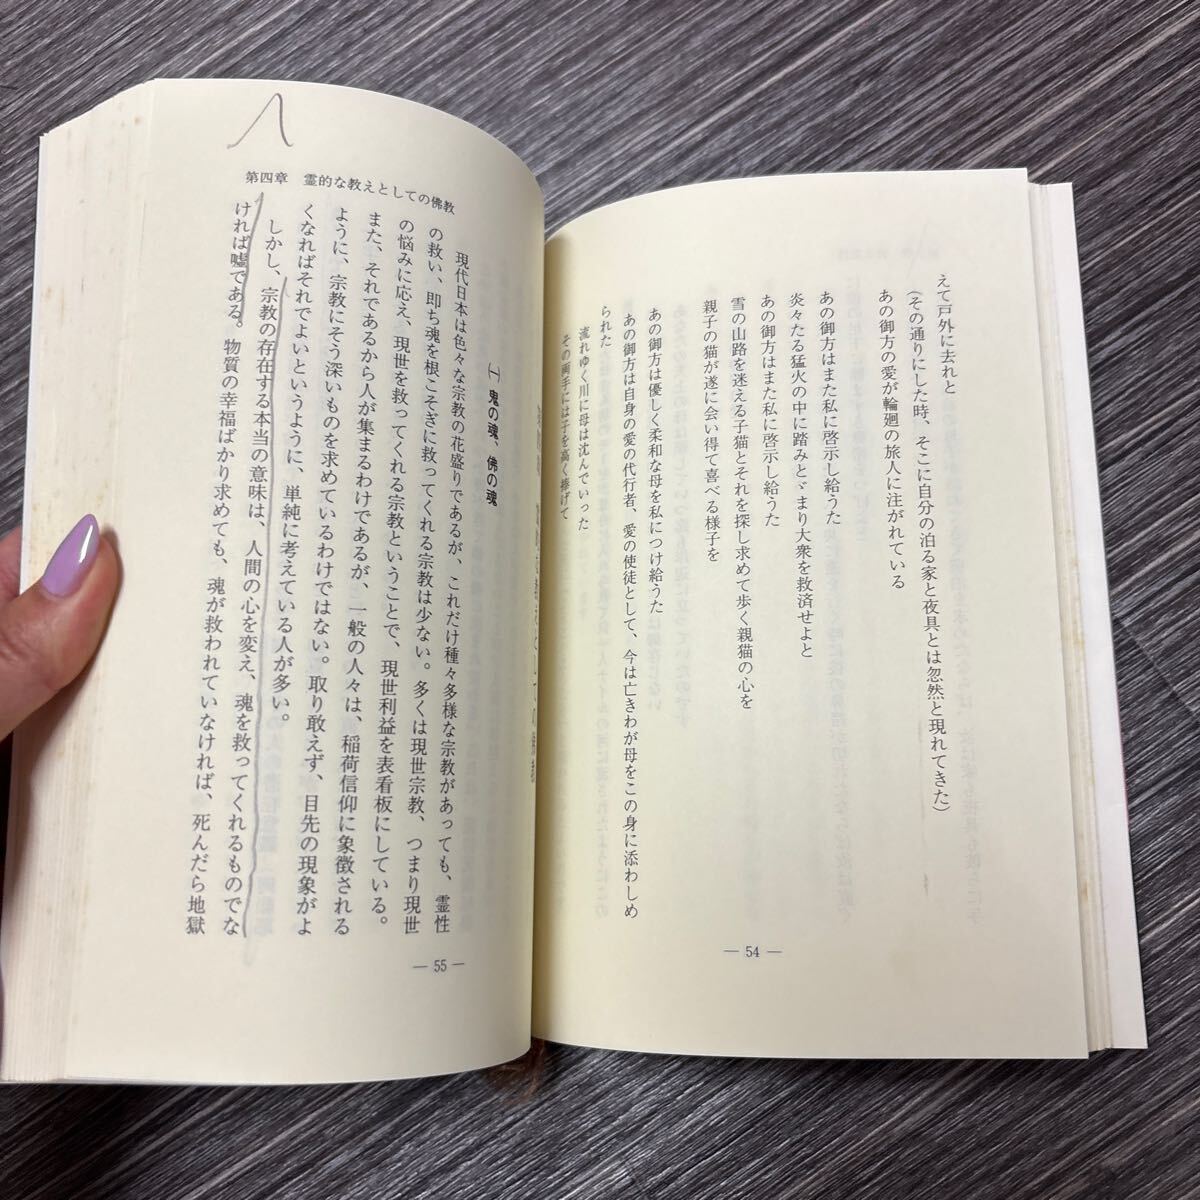 えて戸外に去れと
（その通りにした時、そこに自分の泊る家と夜具とは忽然と現れてきた）
あの御方の愛が輪廻の旅人に注がれている
あの御方はまた私に啓示し給うた
炎々たる猛火の中に踏みとゞまり大衆を救済せよと
あの御方はまた私に啓示し給うた
雪の山路を迷える子猫とそれを探し求めて歩く親猫の心を
親子の猫が遂に会い得て喜べる様子を
あの御方は優しく柔和な母を私につけ給うた
あの御方は自身の愛の代行者、愛の使徒として、今は亡きわが母をこの身に添わしめ
られた
流れゆく川に母は沈んでいった
その両手には子を高く捧げて
― 54 ―
第四章 霊的な教えとしての佛教
一 鬼の魂、佛の魂
現代日本は色々な宗教の花盛りであるが、これだけ種々多様な宗教があっても、霊性
の救い、即ち魂を根こそぎに救ってくれる宗教は少ない。多くは現世宗教、つまり現世
の悩みに応え、現世を救ってくれる宗教ということで、現世利益を表看板にしている。
また、それであるから人が集まるわけであるが、一般の人々は、稲荷信仰に象徴される
ように、宗教にそう深いものを求めているわけではない。取り敢えず、目先の現象がよ
くなればそれでよいというように、単純に考えている人が多い。
しかし、宗教の存在する本当の意味は、人間の心を変え、魂を救ってくれるものでな
ければ嘘である。物質の幸福ばかり求めても、魂が救われていなければ、死んだら地獄
― 55 ―